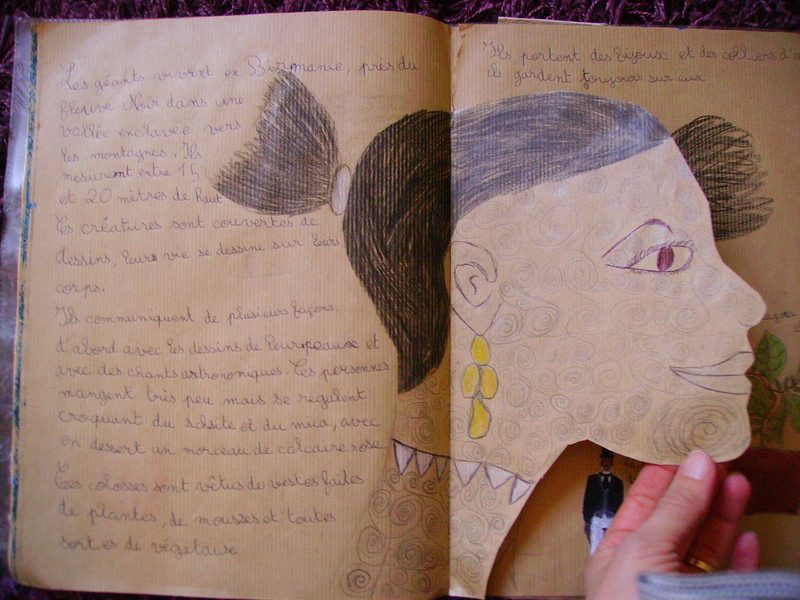 Les géants vivent en Birmanie, près du
fleuve Noir dans une
vallée enclavée vers
les montagnes. Ils
mesurent entre 15
et 20 mètres de haut
Ces créatures sont couvertes de
dessins, leur vie se dessine sur leurs
corps.
Ils communiquent de plusieurs façons.
d'abord avec les dessins de leurs peaux et
avec des chants astronomiques. Ces personnes
mangent très peu mais se régalent
croquant du schiste et du mica, avec
en dessert un morceau de calcaire rose
Ces colosses sont vêtus de vestes faites
de plantes, de mousses et toutes
sortes de végétause
Ils portent des bijoux et des colliers d'o
ils gardent toujours sur eux